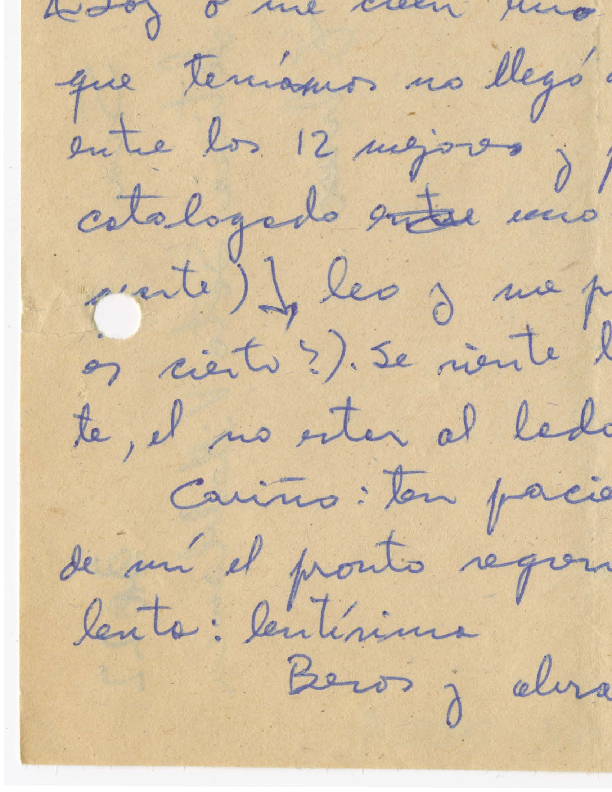 o me creen uno
que teníamos no llegó
entre los 12 mejores y
catalogado entre uno
leo y me
es cierto?). Se siente
te, el no estar al lado
Cariño: ten pacie
de mí el pronto regres
lento: lentísimo
Besos y abra